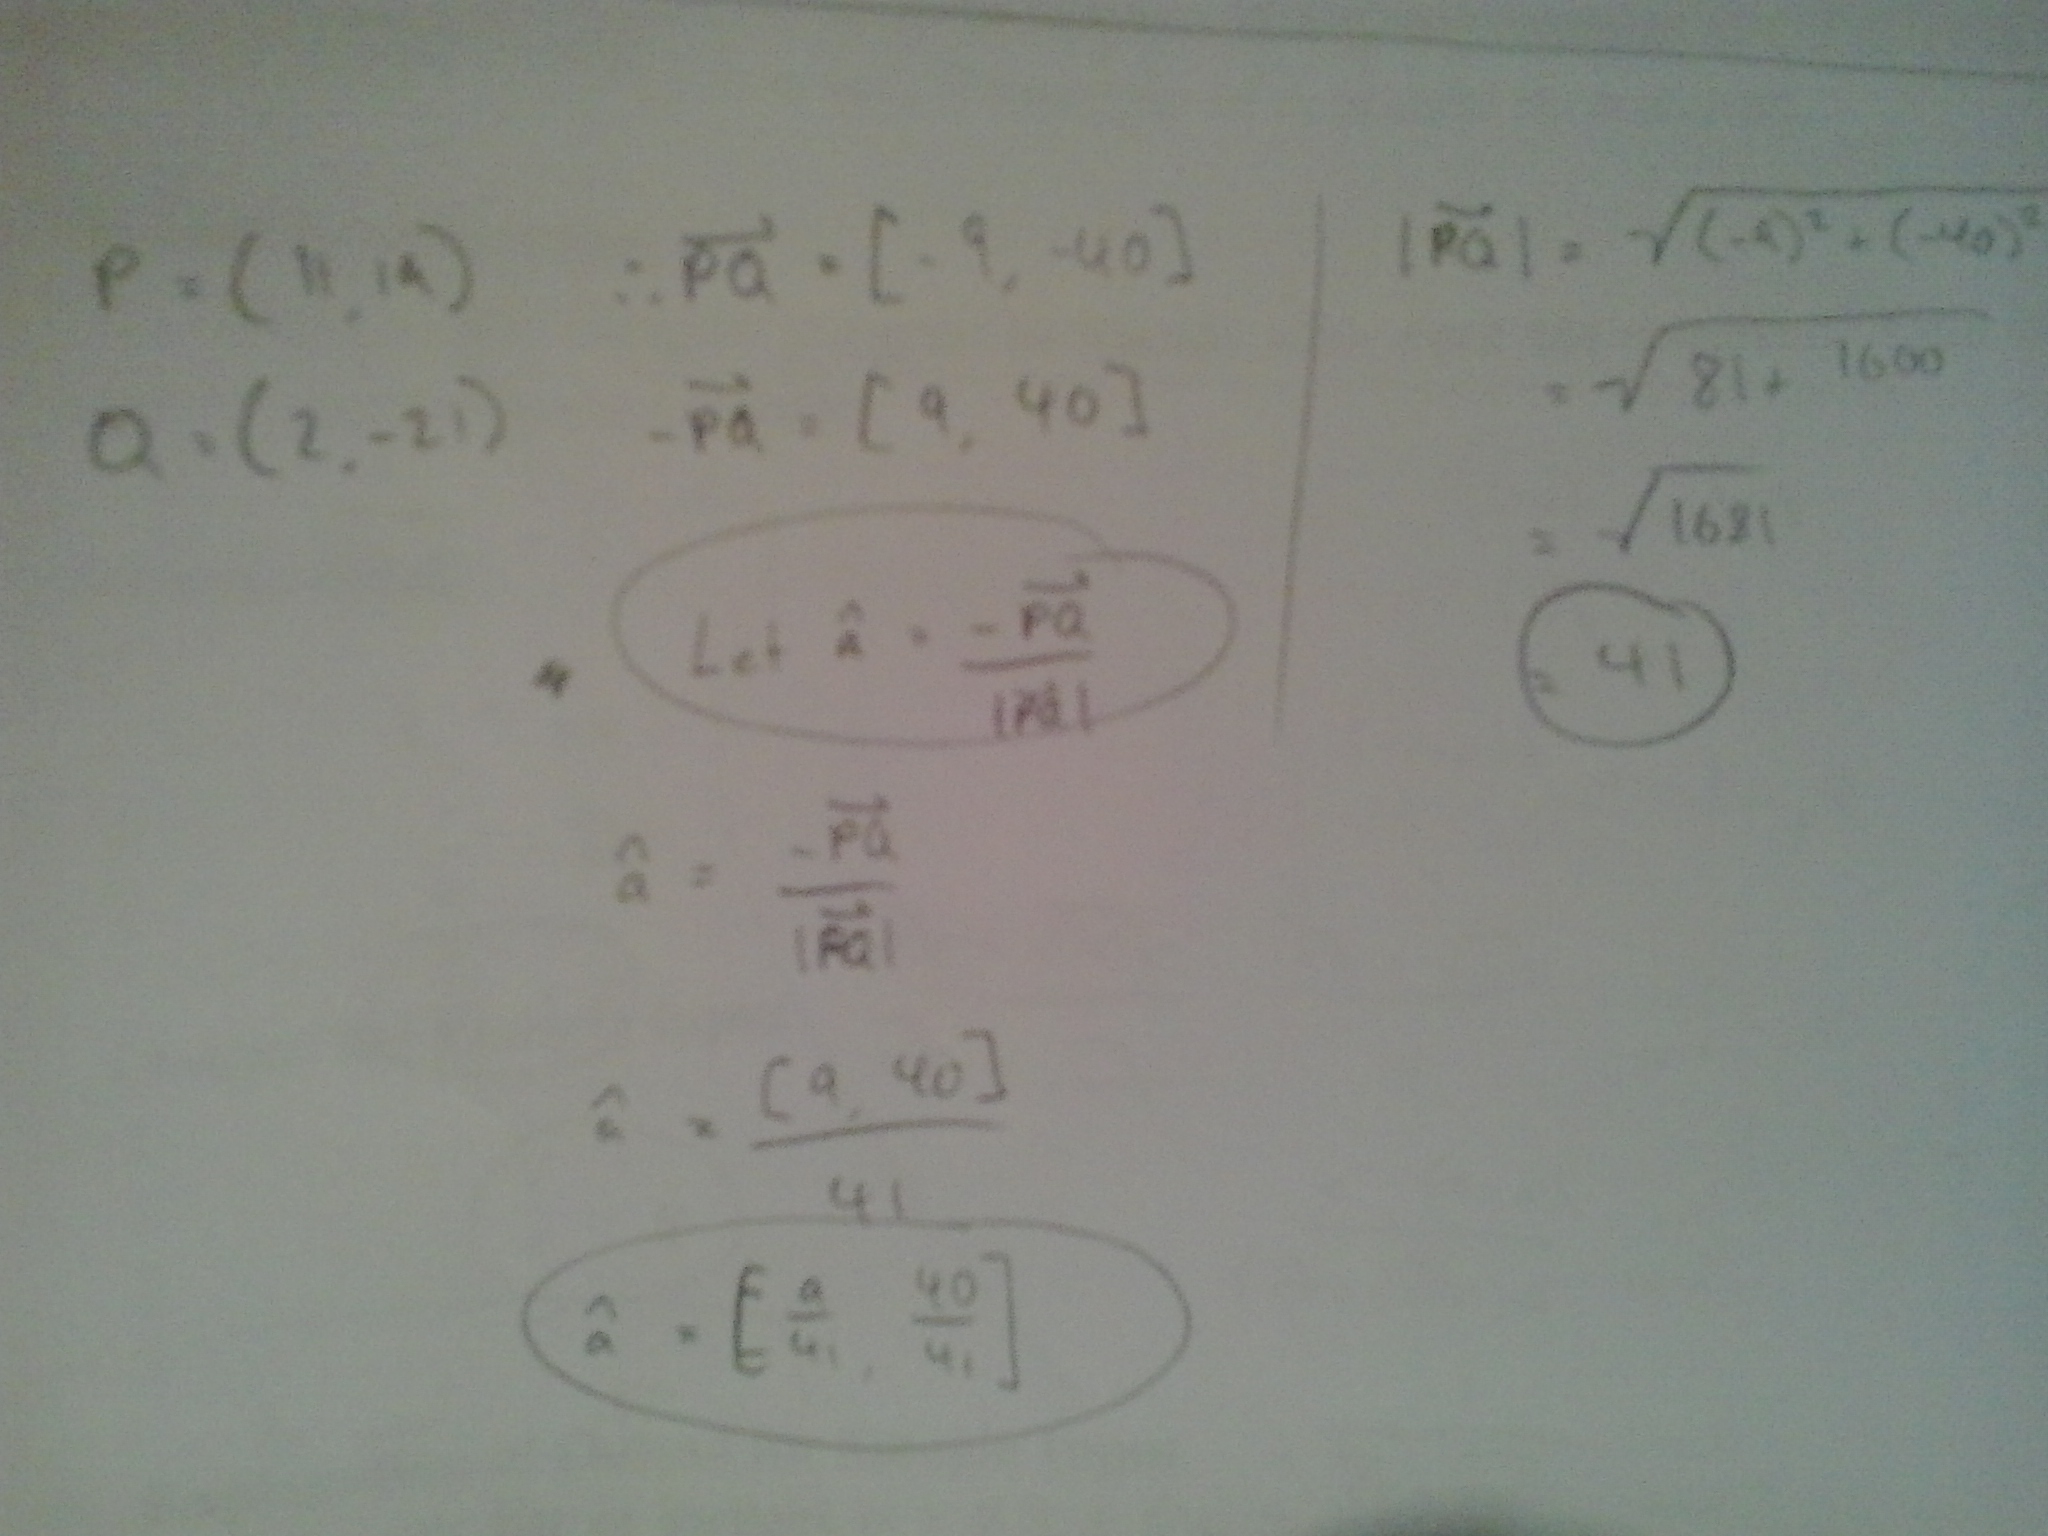 P = (11, 19)
Q = (2, -21)
∴ PQ⃗ = [-9, -40]
-PQ⃗ = [9, 40]
* Let â = -PQ⃗ / |PQ⃗|
â = -PQ⃗ / |PQ⃗|
â = [9, 40] / 41
â = [9/41, 40/41]
|PQ⃗| = √(-9)² + (-40)²
= √81 + 1600
= √1681
= 41